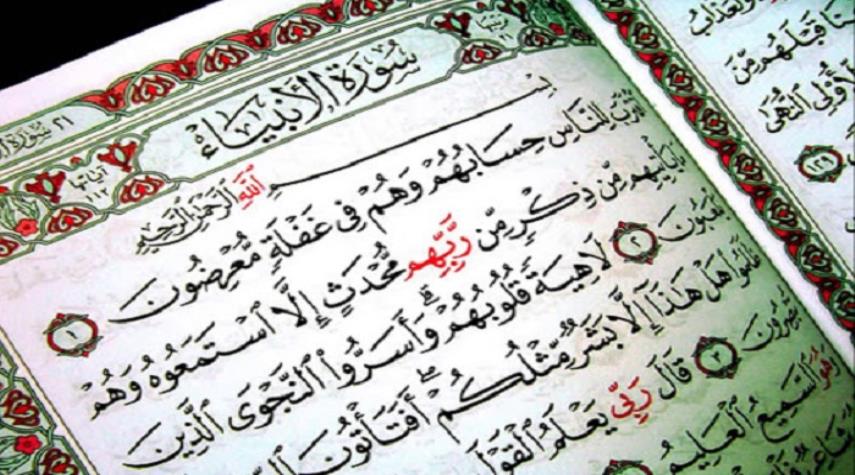 سُورَةُ الأنبيَاء
بِسْمِ ٱللَّهِ ٱلرَّحْمَٰنِ ٱلرَّحِيمِ
ٱقْتَرَبَ لِلنَّاسِ حِسَابُهُمْ وَهُمْ فِى غَفْلَةٍ مُّعْرِضُونَ ١
مَا يَأْتِيهِم مِّن ذِكْرٍ مِّن رَّبِّهِم مُّحْدَثٍ إِلَّا ٱسْتَمَعُوهُ وَهُمْ
يَلْعَبُونَ ٢ لَاهِيَةً قُلُوبُهُمْ ۗ وَأَسَرُّوا۟ ٱلنَّجْوَى ٱلَّذِينَ
ظَلَمُوا۟ هَلْ هَٰذَآ إِلَّا بَشَرٌ مِّثْلُكُمْ ۖ أَفَتَأْتُونَ
تُبْصِرُونَ ٣ قَالَ رَبِّى يَعْلَمُ ٱلْقَوْلَ
وَهُوَ ٱلسَّمِيعُ ٱلْعَلِيمُ
قَبْلَهُم مِّنَ
لِّأُو۟لِى ٱلنُّهَىٰ